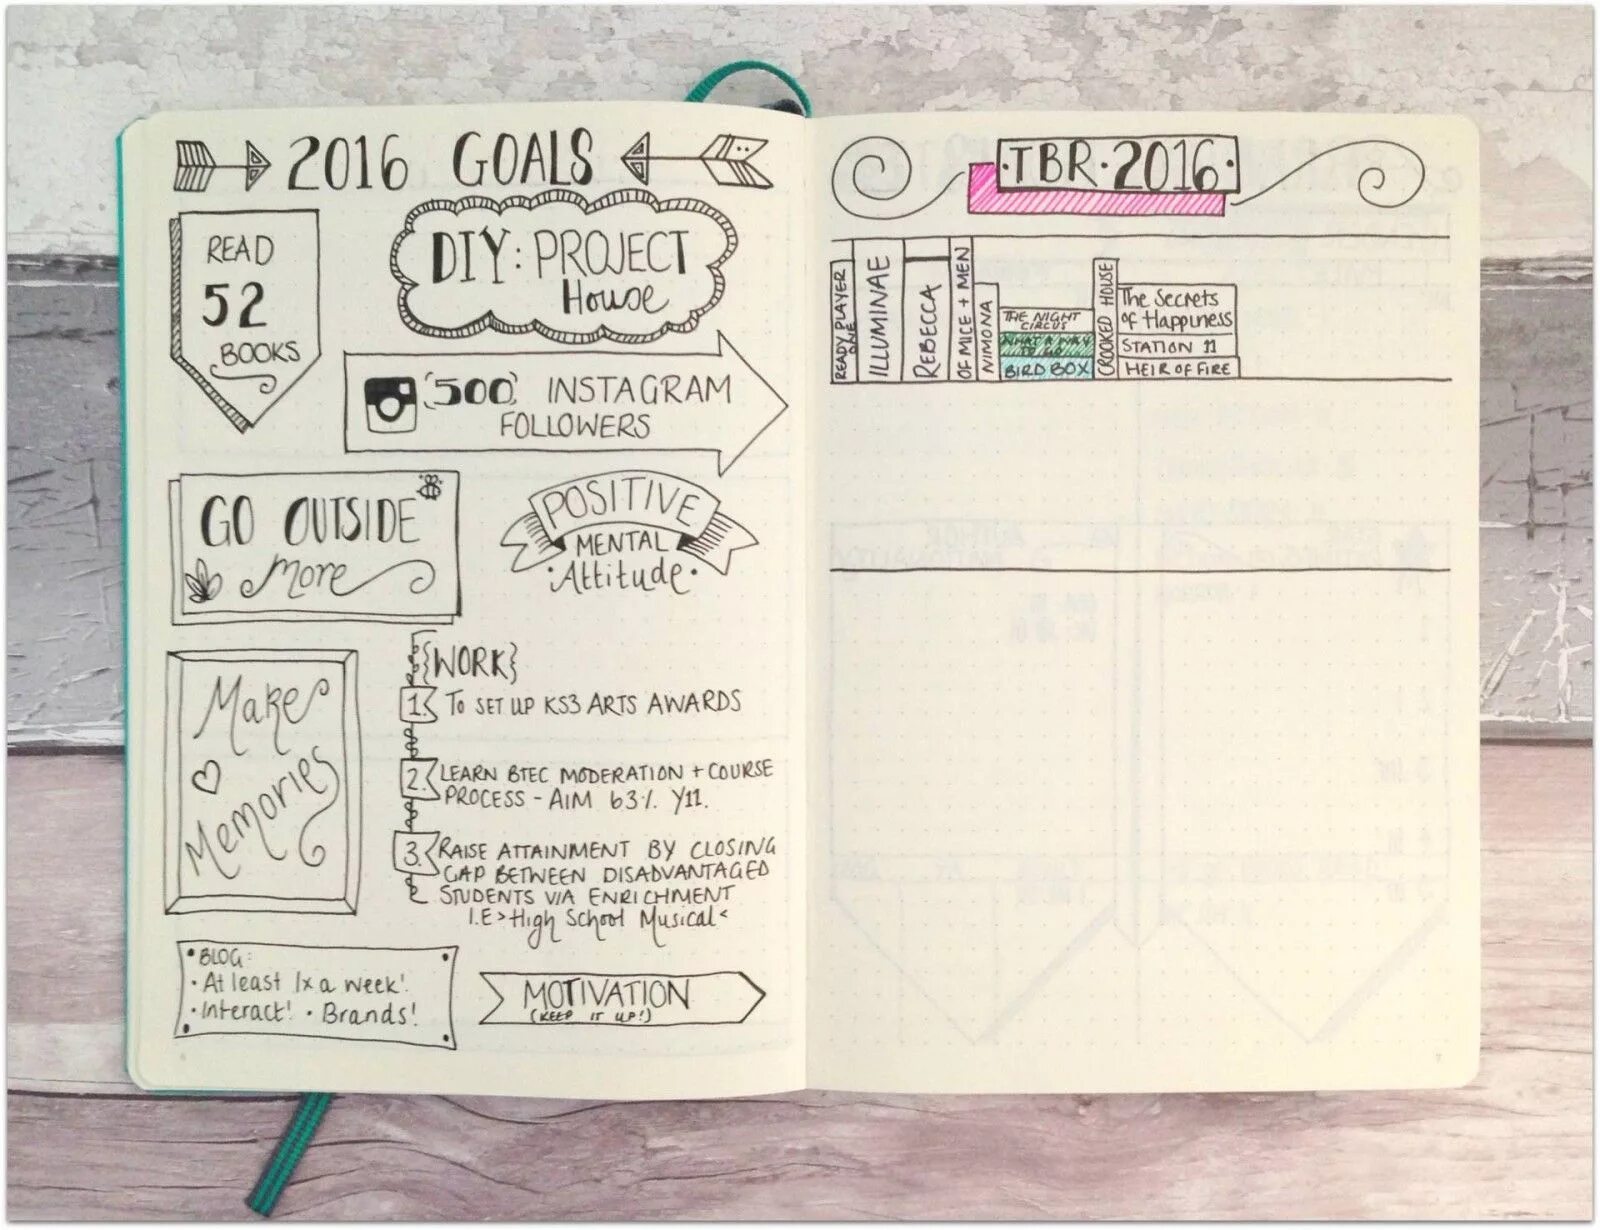 2016 GOALS
READ
52
BOOKS
DIY: PROJECT
House
500 INSTAGRAM
FOLLOWERS
GO OUTSIDE
more
POSITIVE
MENTAL
Attitude
Make
Memories
{WORK}
1. TO SET UP KS3 ARTS AWARDS
2. LEARN BTEC MODERATION + COURSE
PROCESS - AIM 63% Y11.
3. RAISE ATTAINMENT BY CLOSING
GAP BETWEEN DISADVANTAGED
STUDENTS VIA ENRICHMENT
I.E > High School Musical <
BLOG:
• At least 1x a week!
• Interact! • Brands!
MOTIVATION
(KEEP IT UP!)
·TBR·2016·
READY PLAYER
ONE
ILLUMINAE
REBECCA
OF MICE + MEN
NIMONA
THE NIGHT
CIRCUS
WHAT A WAY
TO GO
BIRD BOX
CROOKED HOUSE
The Secrets
of Happiness
STATION 11
HEIR OF FIRE